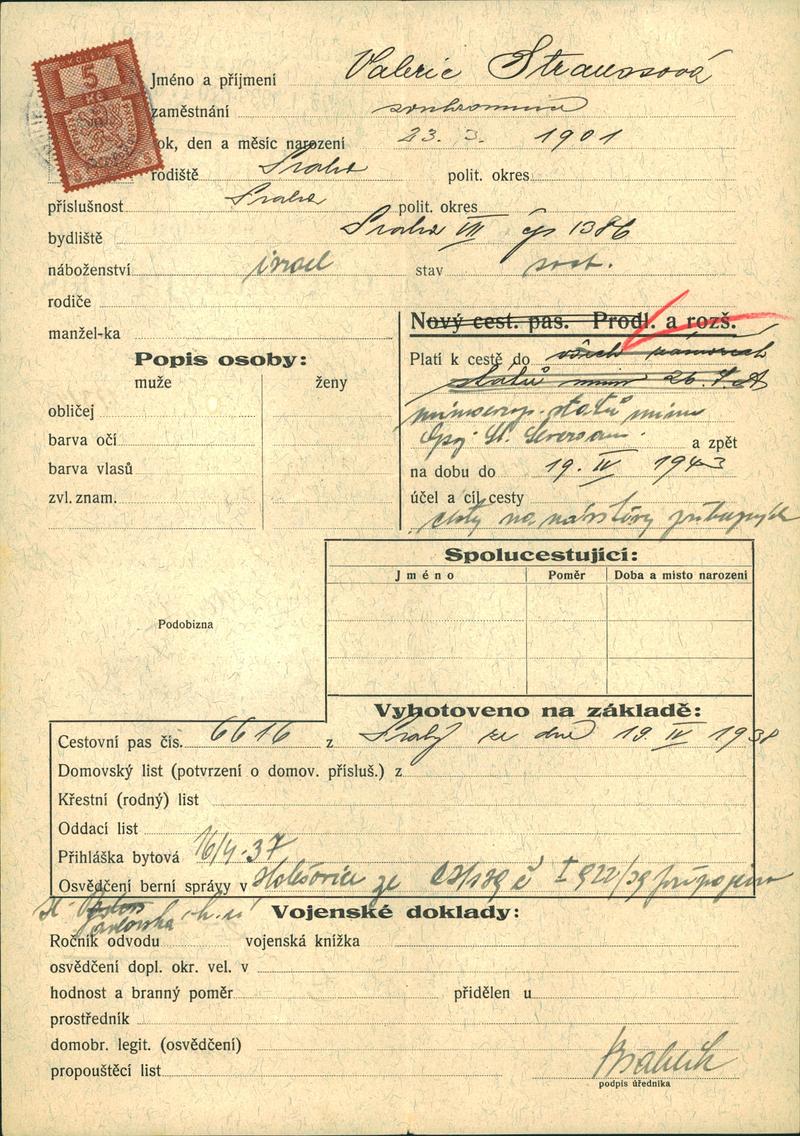 KOLEK
5
KČ
Jméno a příjmení Valerie Straussová
zaměstnání soukromnice
rok, den a měsíc narození 23. 3. 1901
rodiště Praha polit. okres
příslušnost Praha polit. okres
bydliště Praha VII čp 1386
náboženství israel stav svob.
rodiče
manžel-ka
Nový cest. pas. Prodl. a rozš.
Popis osoby:
muže ženy
obličej
barva očí
barva vlasů
zvl. znam.
Platí k cestě do všech
států mimo
mimoevrop. států mimo
a zpět
na dobu do 19. IV 1943
účel a cíl cesty
cesty na návštěvy příbuzných
Spolucestující:
Jméno Poměr Doba a místo narození
Podobizna
Vyhotoveno na základě:
Cestovní pas čís. 6616 z Prahy ze dne 19. IV 1938
Domovský list (potvrzení o domov. přísluš.) z
Křestní (rodný) list
Oddací list
Přihláška bytová 16/4-37
Osvědčení berní správy v Holešovice ze č I 922/39
Vojenské doklady:
Ročník odvodu vojenská knížka
osvědčení dopl. okr. vel. v
hodnost a branný poměr přidělen u
prostředník
domobr. legit. (osvědčení)
propouštěcí list
podpis úředníka